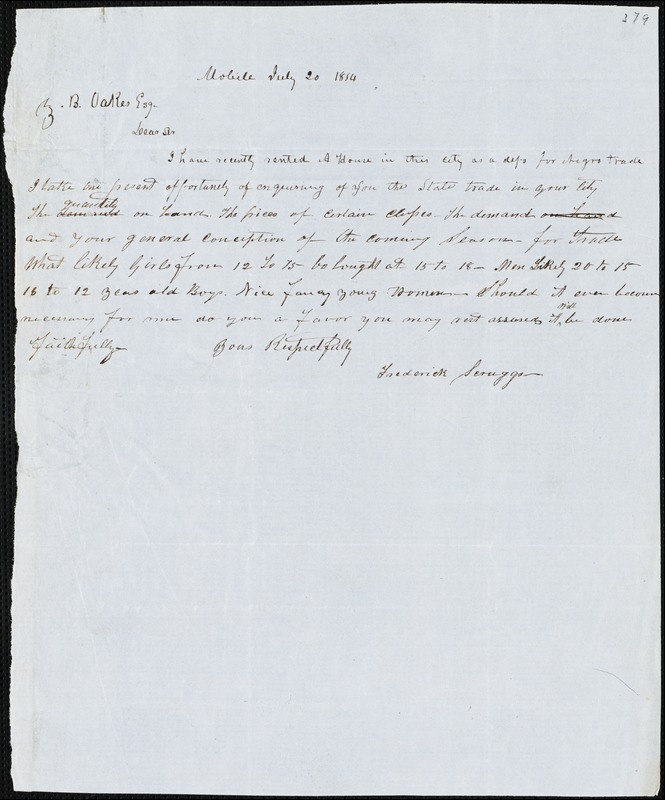 379
Mobile July 20 1854
Z. B. Oakes Esq
Dear Sir
I have recently rented A House in this city as a depo for Negro trade
I take the present opportunity of enquiring of you the State trade in your City
The quantity on hand The prices of certain classes The demand on hand
and your general conception of the coming Season for Trade
What likely Girls from 12 To 15 be bought at 15 to 18 Men Likely 20 to 15
18 to 12 years old Boys. Nice Fancy young Women Should it ever becom
necessary for me do you a favor you may rest assured It will be done
Faithfully Yours Respectfully
Frederick Scruggs